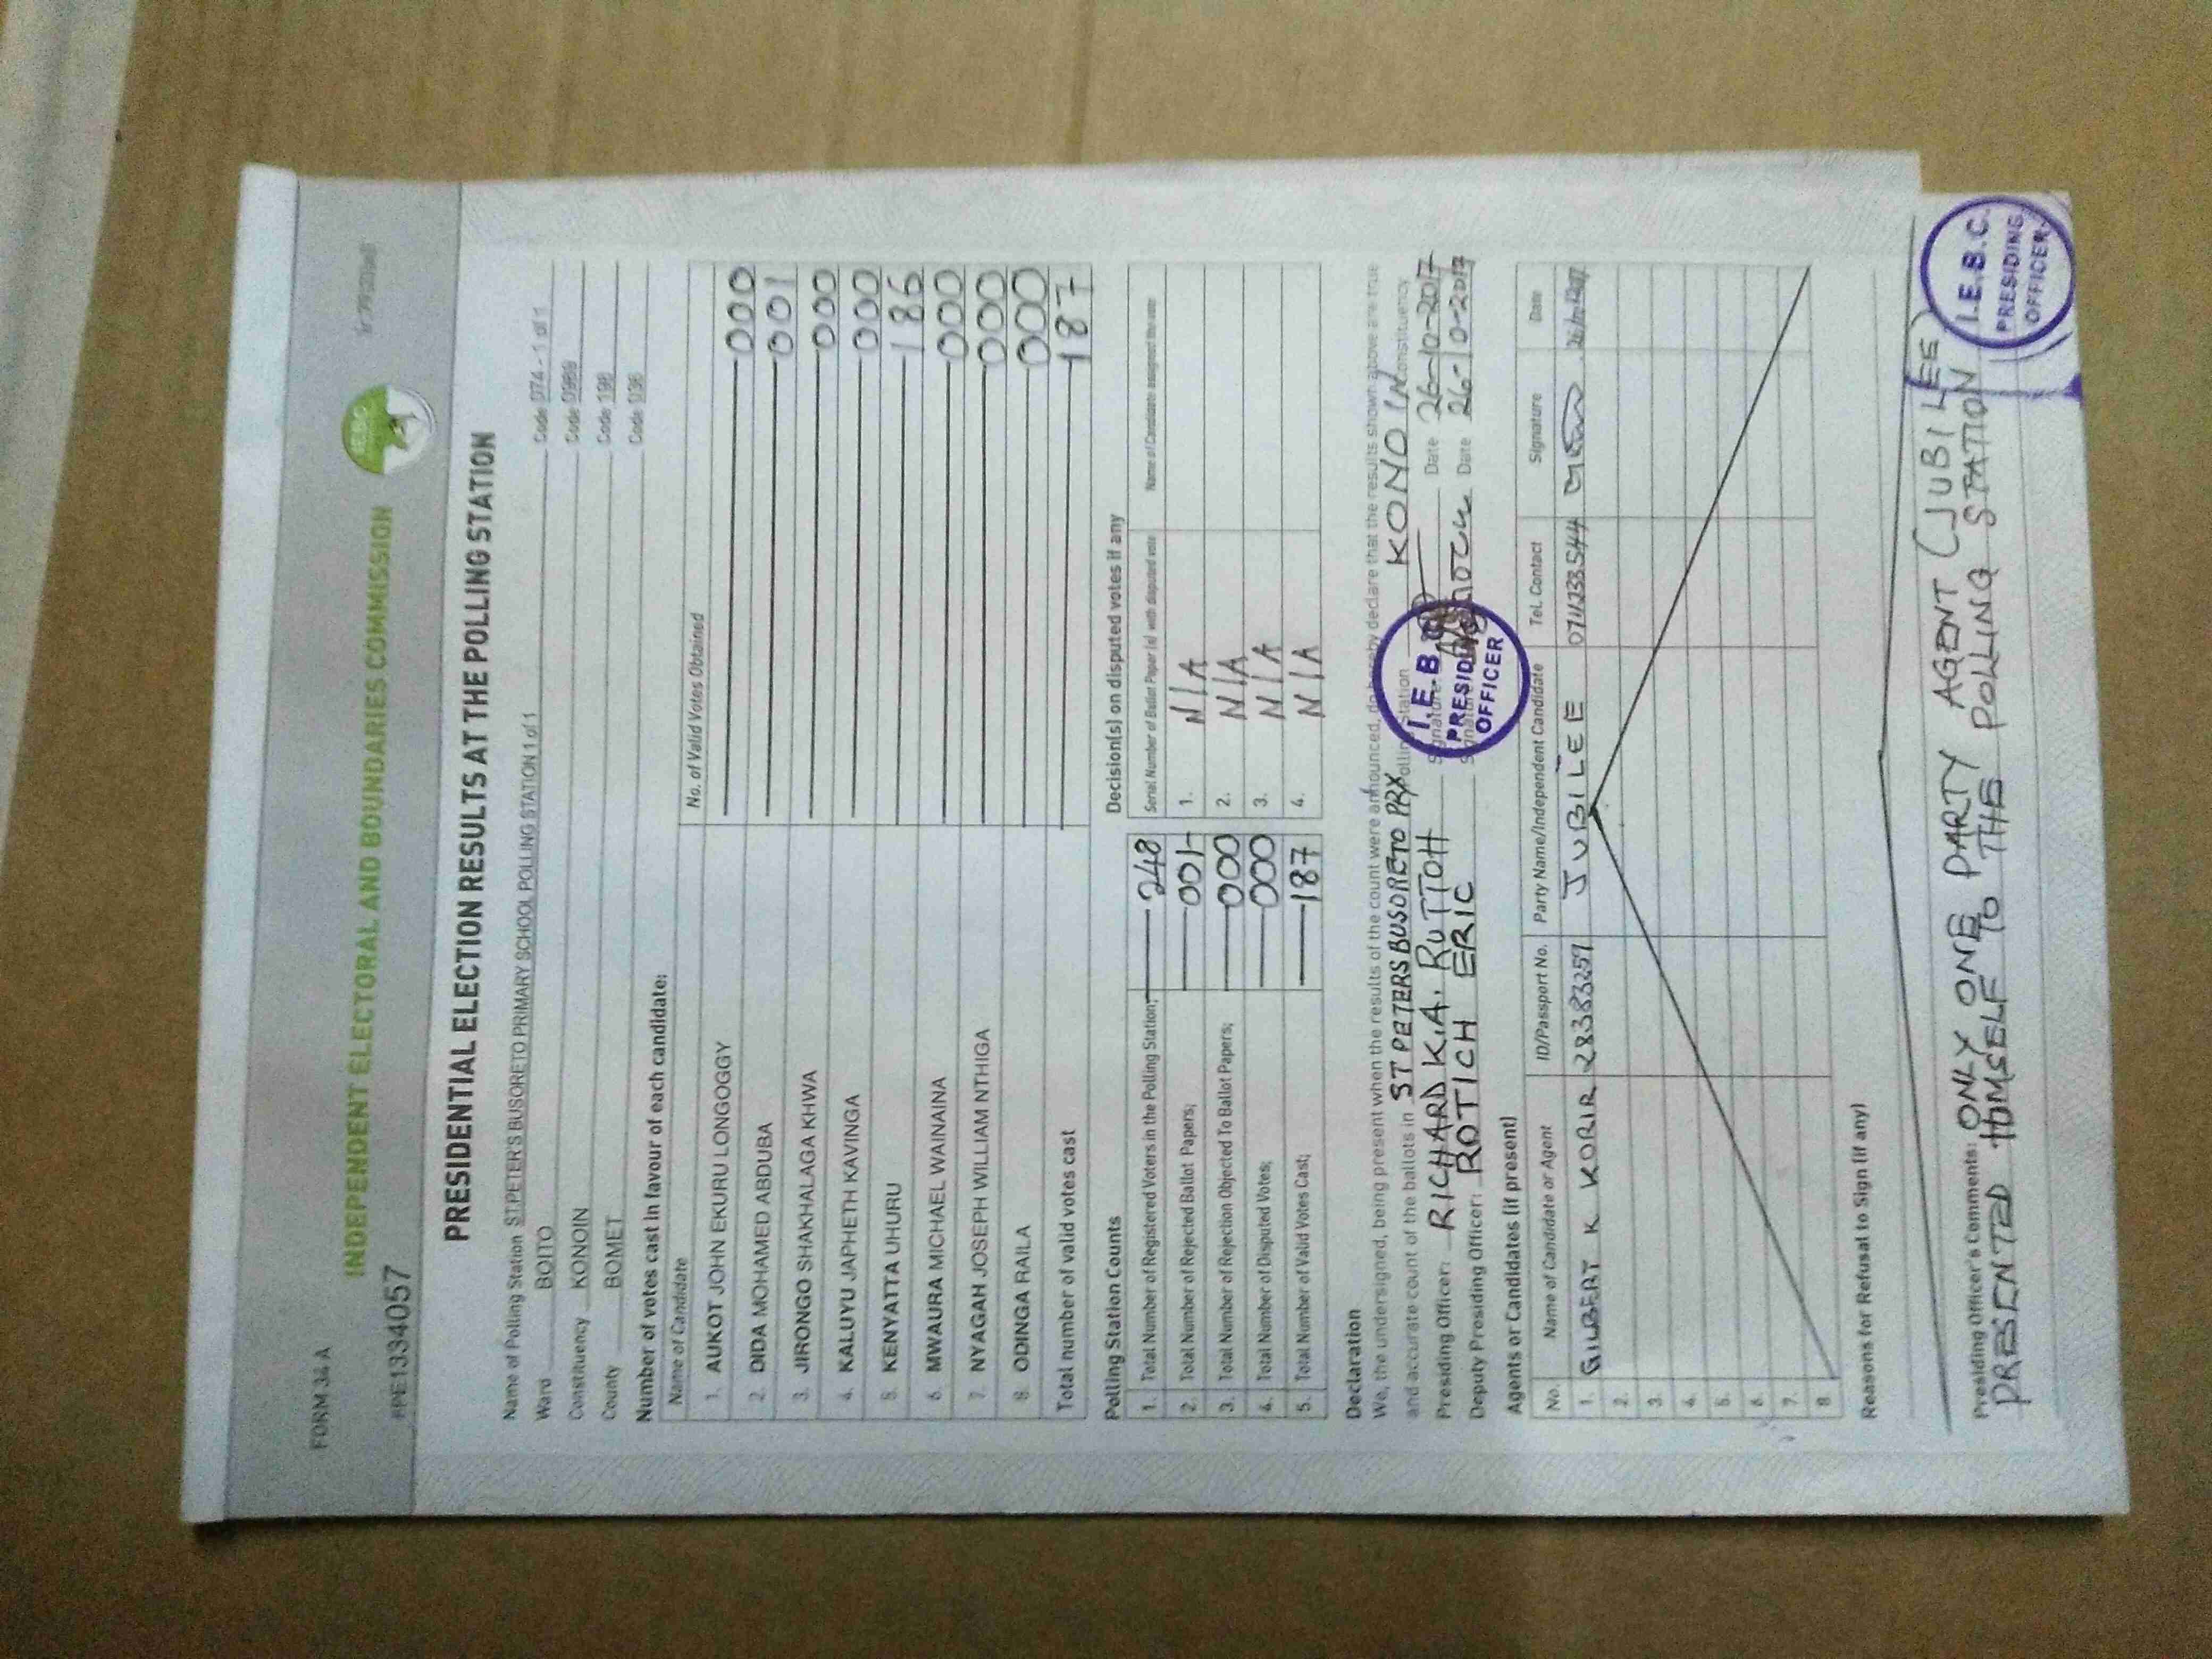 FORM 34 A
INDEPENDENT ELECTORAL AND BOUNDARIES COMMISSION
PPE1334057
PRESIDENTIAL ELECTION RESULTS AT THE POLLING STATION
Name of Polling Station ST.PETER'S BUSORETO PRIMARY SCHOOL POLLING STATION 1 of 1 Code 074 - 1 of 1
Ward BOITO Code 0989
Constituency KONOIN Code 198
County BOMET Code 036
Number of votes cast in favour of each candidate:
Name of Candidate No. of Valid Votes Obtained
1. AUKOT JOHN EKURU LONGOGGY 000
2. DIDA MOHAMED ABDUBA 001
3. JIRONGO SHAKHALAGA KHWA 000
4. KALUYU JAPHETH KAVINGA 000
5. KENYATTA UHURU 186
6. MWAURA MICHAEL WAINAINA 000
7. NYAGAH JOSEPH WILLIAM NTHIGA 000
8. ODINGA RAILA 000
Total number of valid votes cast 187
Polling Station Counts
1. Total Number of Registered Voters in the Polling Station; 248
2. Total Number of Rejected Ballot Papers; 001
3. Total Number of Rejection Objected To Ballot Papers; 000
4. Total Number of Disputed Votes; 000
5. Total Number of Valid Votes Cast; 187
Decision(s) on disputed votes if any
Serial Number of Ballot Paper (s) with disputed vote Name of Candidate assigned the vote
1. N/A
2. N/A
3. N/A
4. N/A
Declaration
We, the undersigned, being present when the results of the count were announced, do hereby declare that the results shown above are true
and accurate count of the ballots in ST PETERS BUSORETO PRY Polling Station KONOIN Constituency
Presiding Officer: RICHARD K.A. RUTTOH Signature Date 26-10-2017
Deputy Presiding Officer: ROTICH ERIC Signature Date 26-10-2017
I.E.B.C.
PRESIDING
OFFICER
Agents or Candidates (if present)
No. Name of Candidate or Agent ID/Passport No. Party Name/Independent Candidate Tel. Contact Signature Date
1. GILBERT K KORIR 28383257 JUBILEE 0711233544
2.
3
4.
5.
6.
7.
8
Reasons for Refusal to Sign (if any)
Presiding Officer's Comments: ONLY ONE PARTY AGENT (JUBILEE)
PRESENTED HIMSELF TO THE POLLING STATION
I.E.B.C.
PRESIDING
OFFICER